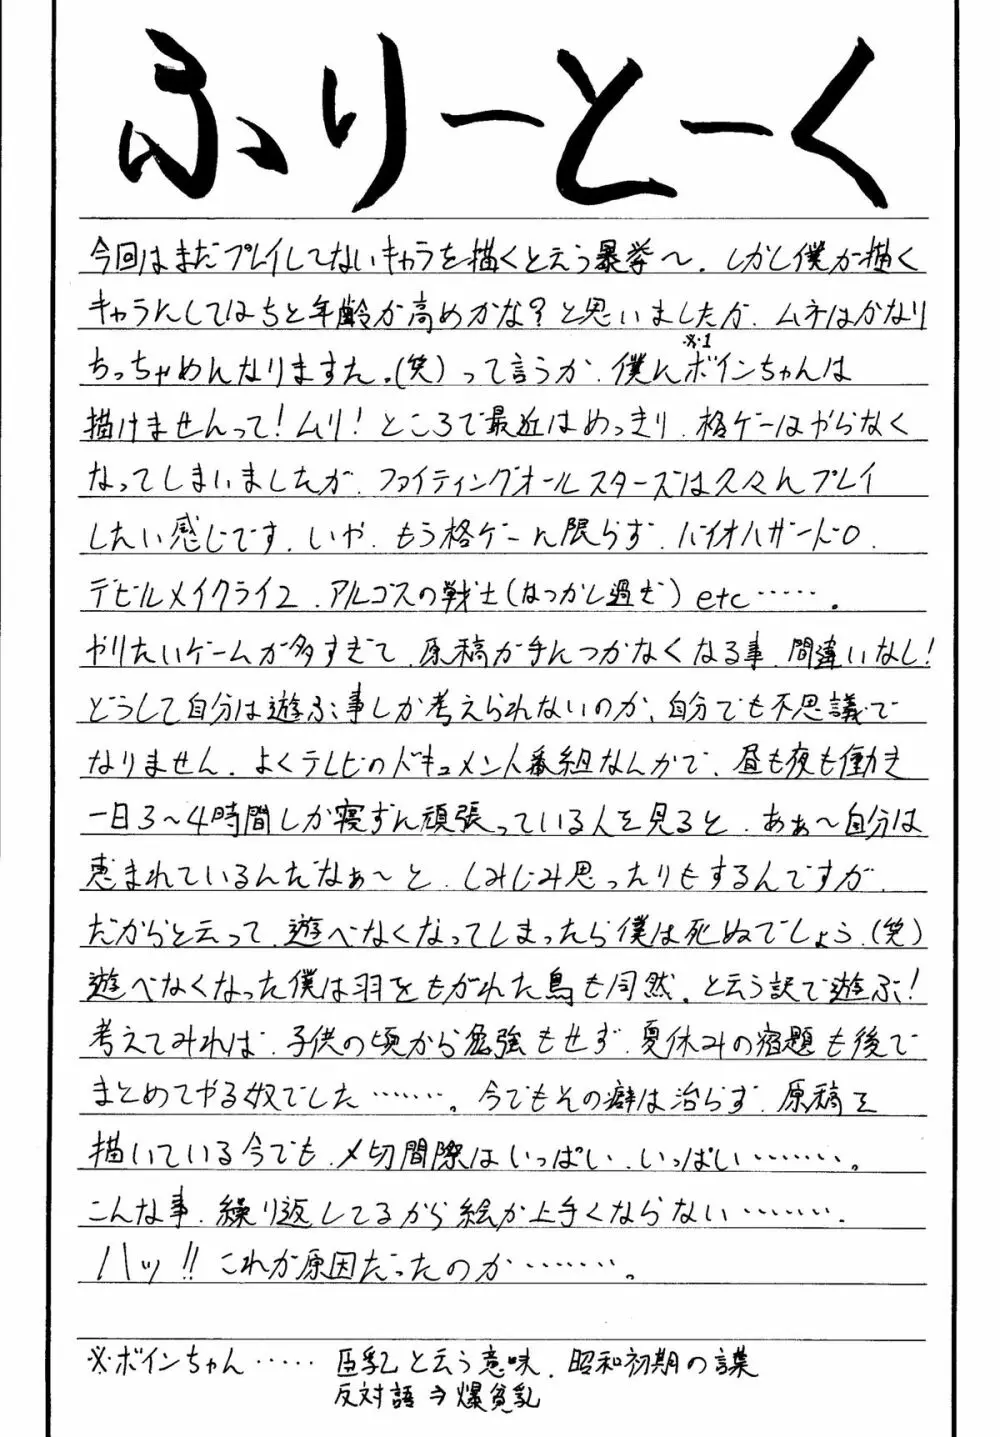 ふりーとーく
今回はまだプレイしてないキャラを描くと云う暴挙〜。しかし僕が描く
キャラにしてはちと年齢が高めかな?と思いましたが、ムネはかなり
ちっちゃめになりますた。(笑)って言うか、僕にボインちゃんは
※1
描けませんって!ムリ!ところで最近はめっきり、格ゲーはやらなく
なってしまいましたが、ファイティングオールスターズは久々にプレイ
したい感じです。いや、もう格ゲーに限らず、バイオハザード0、
デビルメイクライ2、アルゴスの戦士(なつかし過ぎ)etc……。
やりたいゲームが多すぎて、原稿が手につかなくなる事、間違いなし!
どうして自分は遊ぶ事しか考えられないのか、自分でも不思議で
なりません。よくテレビのドキュメント番組なんかで、昼も夜も働き
一日3〜4時間しか寝ずに頑張っている人を見ると、あぁ〜自分は
恵まれているんだなぁ〜と、しみじみ思ったりもするんですが、
だからと云って、遊べなくなってしまったら僕は死ぬでしょう。(笑)
遊べなくなった僕は羽をもがれた鳥も同然。と云う訳で遊ぶ!
考えてみれば、子供の頃から勉強もせず、夏休みの宿題も後で
まとめてやる奴でした………。今でもその癖は治らず、原稿を
描いている今でも、〆切間際はいっぱい、いっぱい………。
こんな事、繰り返してるから絵が上手くならない………。
ハッ!!これが原因だったのか………。
※ボインちゃん……巨乳と云う意味。昭和初期の言葉
反対語⇒爆貧乳